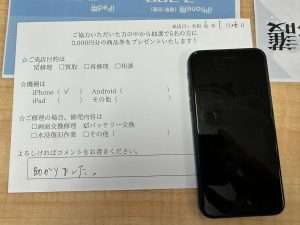 iPhone修
iPad用
ご協力いただいた方の中から抽選で5名の方に
3,000円分の商品券をプレゼントいたします!
☆ご来店目的は
☑修理 □買取 □再修理 □相談
☆機種は
iPhone( ✓ ) Android( )
iPad ( ) その他( )
☆ご修理の場合、修理内容は
□画面交換修理 ☑バッテリー交換
□水没復旧作業 □その他( )
よろしければコメントをお書きください。
助かりました。